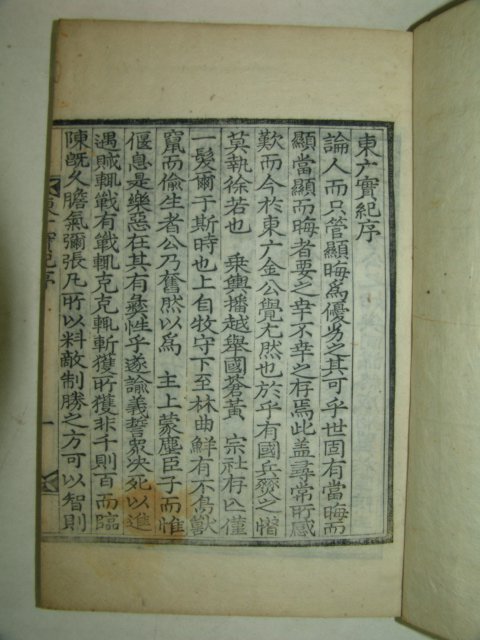 東广實紀序
論人而只管顯晦爲優劣之其可乎世固有當晦而
顯當顯而晦者要之幸不幸之存焉此盖尋常所感
歎而今於東广金公覺尤然也於乎有國兵燹之憯
莫執徐若也 乘輿播越舉國蒼黃 宗社存亾僅
一髮爾于斯時也上自牧守下至林曲鮮有不鳥獸
竄而偷生者公乃奮然以爲 主上蒙塵臣子而惟
偃息是樂惡在其有彝性乎遂諭義誓衆决死以進
遇賊輒戰有戰輒克克輒斬獲所獲非千則百而臨
陳旣久膽氣彌張凡所以料敵制勝之方可以智則
實紀序
一